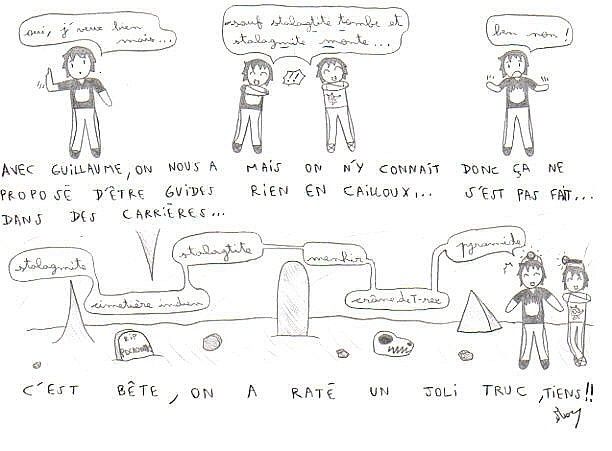 oui, j'veux bien
mais...
sauf stalagtite tombe et
stalagmite monte...
!?!
ben non!
AVEC GUILLAUME, ON NOUS A
PROPOSÉ D'ÊTRE GUIDES
DANS DES CARRIÈRES...
MAIS ON N'Y CONNAÎT
RIEN EN CAILLOUX...
DONC ÇA NE
S'EST PAS FAIT...
stalagmite
cimetière indien
stalagtite
menhir
crâne de T-rex
pyramide
RIP
C'EST BÊTE, ON A RATÉ UN JOLI TRUC, TIENS!!